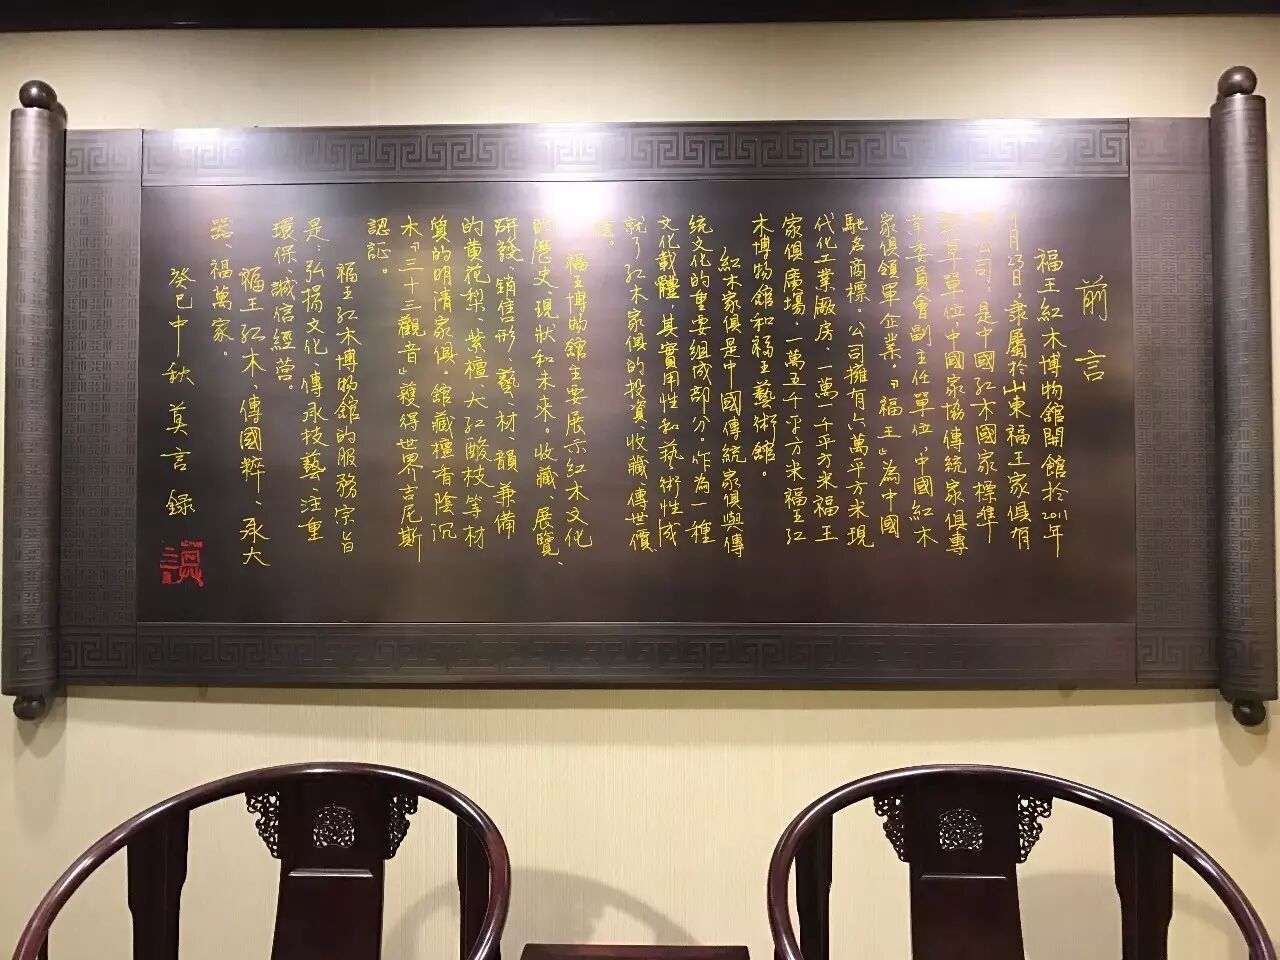 前言
福王紅木博物館開館於2011年
月23日，隸屬於山東福王家俱有
公司，是中國紅木國家標準
草單位，中國家協傳統家俱專
業委員會副主任單位，中國紅木
家俱領軍企業。「福王」為中國
馳名商標。公司擁有六萬平方米現
代化工業廠房，一萬一千平方米福王
家俱廣場，一萬五千平方米福王紅
木博物館和福王藝術館。
紅木家俱是中國傳統家俱與傳
統文化的重要組成部分。作為一種
文化載體，其實用性和藝術性成
就了紅木家俱的投資、收藏、傳世價
值。
福王博物館主要展示紅木文化
的歷史、現狀和未來。收藏、展覽、
研發、銷售形、藝、材、韻兼備
的黃花梨、紫檀、大紅酸枝等材
質的明清家俱。館藏檀香陰沉
木「三十三觀音」獲得世界吉尼斯
認証。
福王紅木博物館的服務宗旨
是：弘揚文化、傳承技藝、注重
環保、誠信經營。
福王紅木、傳國粹、承大
器、福萬家。
癸巳中秋 莫言錄